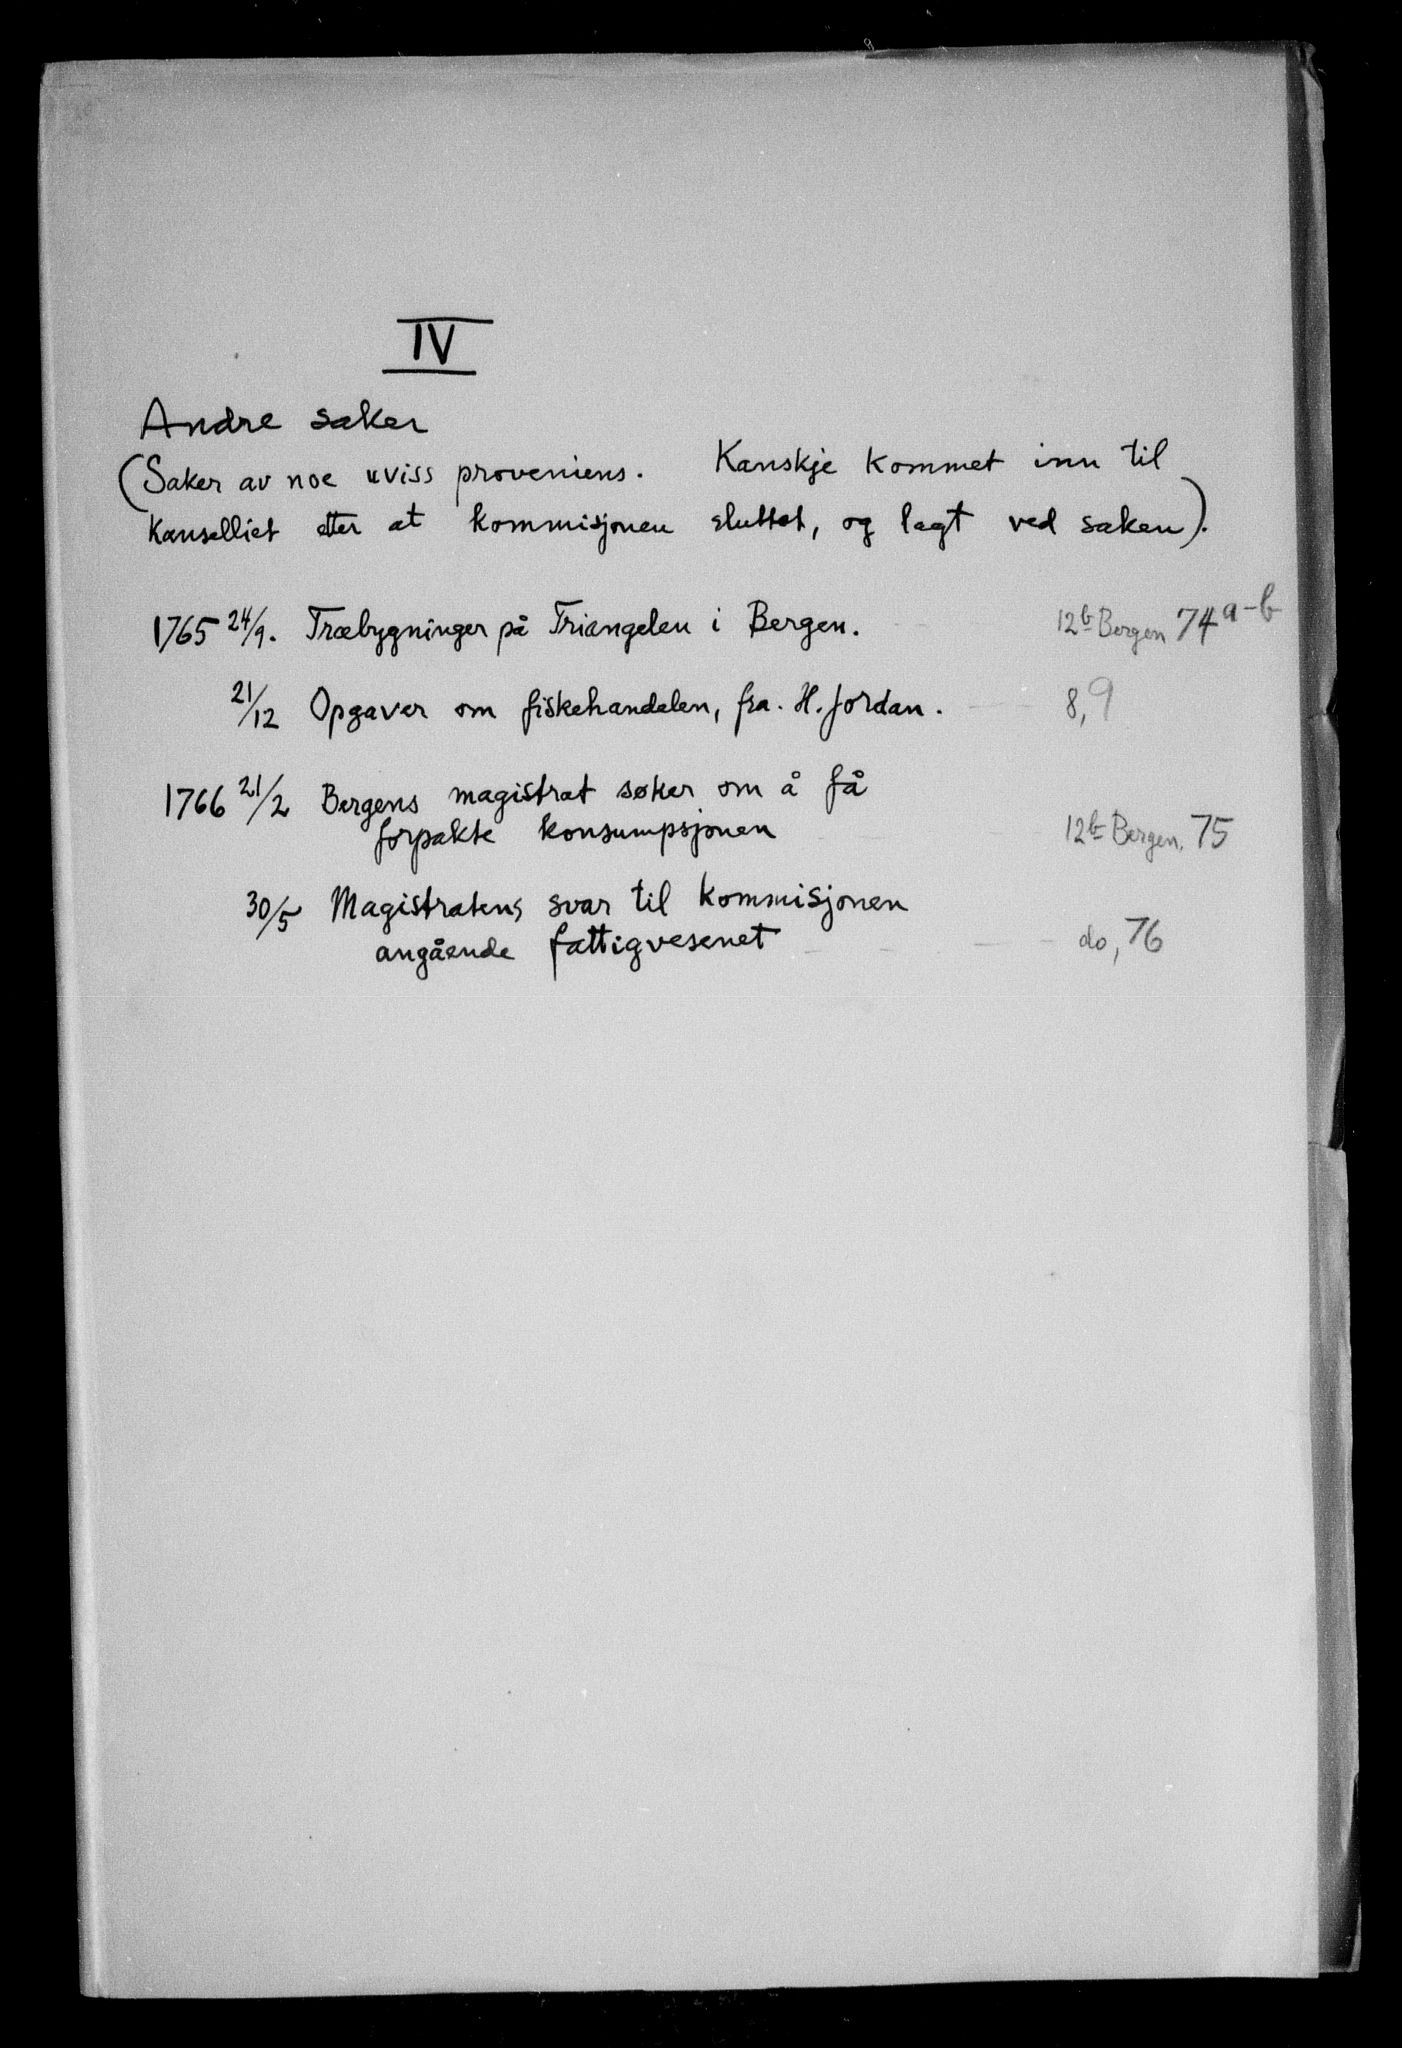 IV
Andre saker
(Saker av noe uviss proveniens. Kanskje kommet inn til
Kanselliet etter at kommisjonen sluttet, og lagt ved saken).
1765 24/9. Træbygninger på Triangelen i Bergen. 12b Bergen 74 a-b
21/12 Opgaver om fiskehandelen, fra. H. Jordan. 8, 9
1766 21/2 Bergens magistrat søker om å få
forpakte konsumpsjonen 12b Bergen, 75
30/5 Magistratens svar til kommisjonen
angående fattigvesenet do, 76